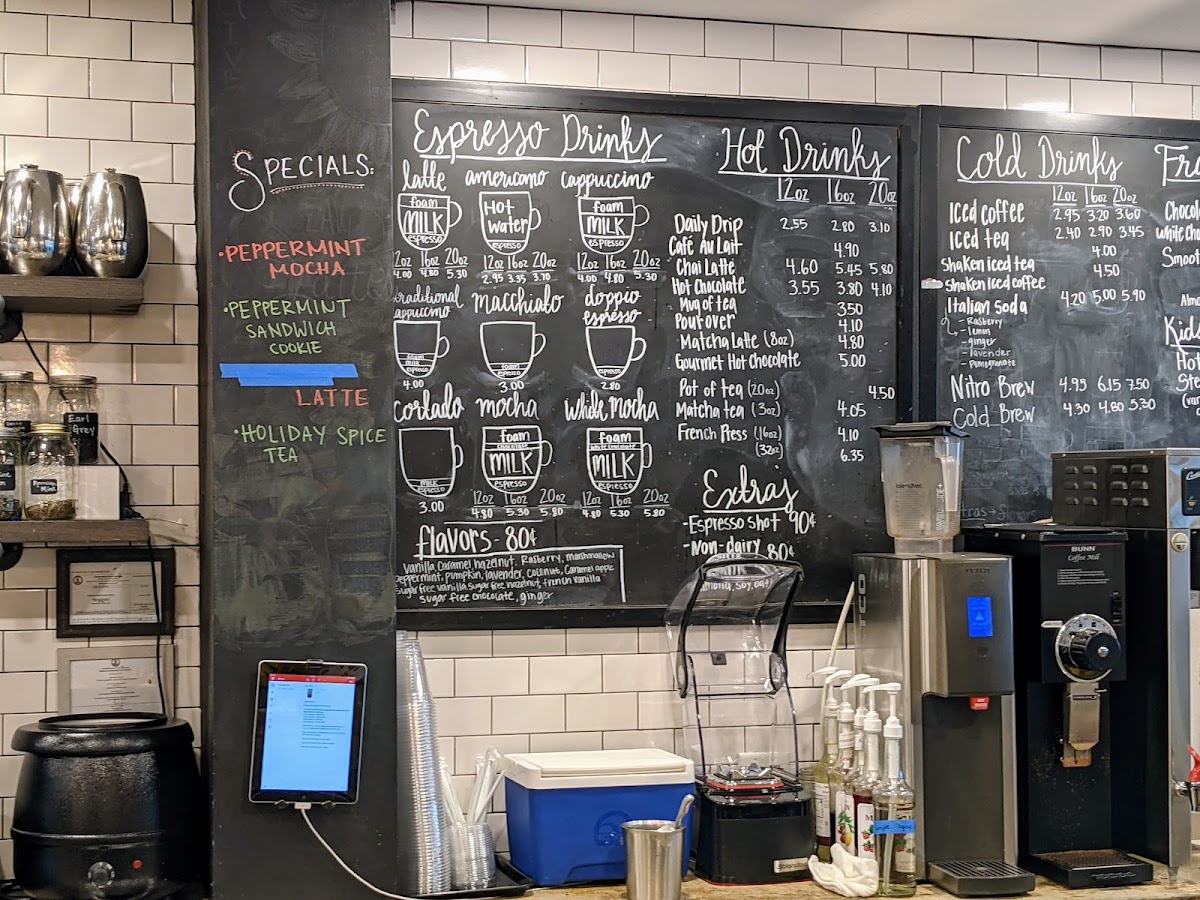 SPECIALS:
•PEPPERMINT
MOCHA
•PEPPERMINT
SANDWICH
COOKIE
LATTE
•HOLIDAY SPICE
TEA
Espresso Drinks
latte americano cappuccino
foam
MILK
espresso
Hot
water
espresso
foam
MILK
espresso
12oz 16oz 20oz
4.00 4.80 5.30
12oz 16oz 20oz
2.95 3.35 3.70
12oz 16oz 20oz
4.00 4.80 5.30
traditional
cappuccino
macchiato
doppio
espresso
foam
milk
espresso
4.00
foam
espresso
3.00
espresso
2.80
cortado mocha white mocha
milk
espresso
3.00
foam
chocolate
MILK
espresso
12oz 16oz 20oz
4.80 5.30 5.80
foam
white chocolate
MILK
espresso
12oz 16oz 20oz
4.80 5.30 5.80
flavors - 80¢
vanilla, caramel, hazelnut, Rasberry, marshmallow
peppermint, pumpkin, lavender, coconut, caramel apple
sugar free vanilla, sugar free hazelnut, french vanilla
sugar free chocolate, ginger
Hot Drinks
12oz 16oz 20oz
Daily Drip 2.55 2.80 3.10
Café Au Lait 4.90
Chai Latte 4.60 5.45 5.80
Hot Chocolate 3.55 3.80 4.10
Mug of tea 3.50
Pour over 4.10
Matcha Latte (8oz) 4.80
Gourmet Hot Chocolate 5.00
Pot of tea (20oz) 4.50
Matcha tea (3oz) 4.05
French Press (16oz) 4.10
(32oz) 6.35
Extras
-Espresso shot 90¢
-non-dairy 80¢
almond, soy, oat
Cold Drinks
12oz 16oz 20oz
Iced coffee 2.95 3.20 3.60
Iced tea 2.40 2.90 3.45
shaken iced tea 4.00
shaken iced coffee 4.50
Italian soda 4.20 5.00 5.90
- Rasberry
- lemon
- ginger
- lavender
- Pomegranate
Nitro Brew 4.95 6.15 7.50
Cold Brew 4.30 4.80 5.30
Earl
Grey
blendtec
BUNN
Coffee Mill